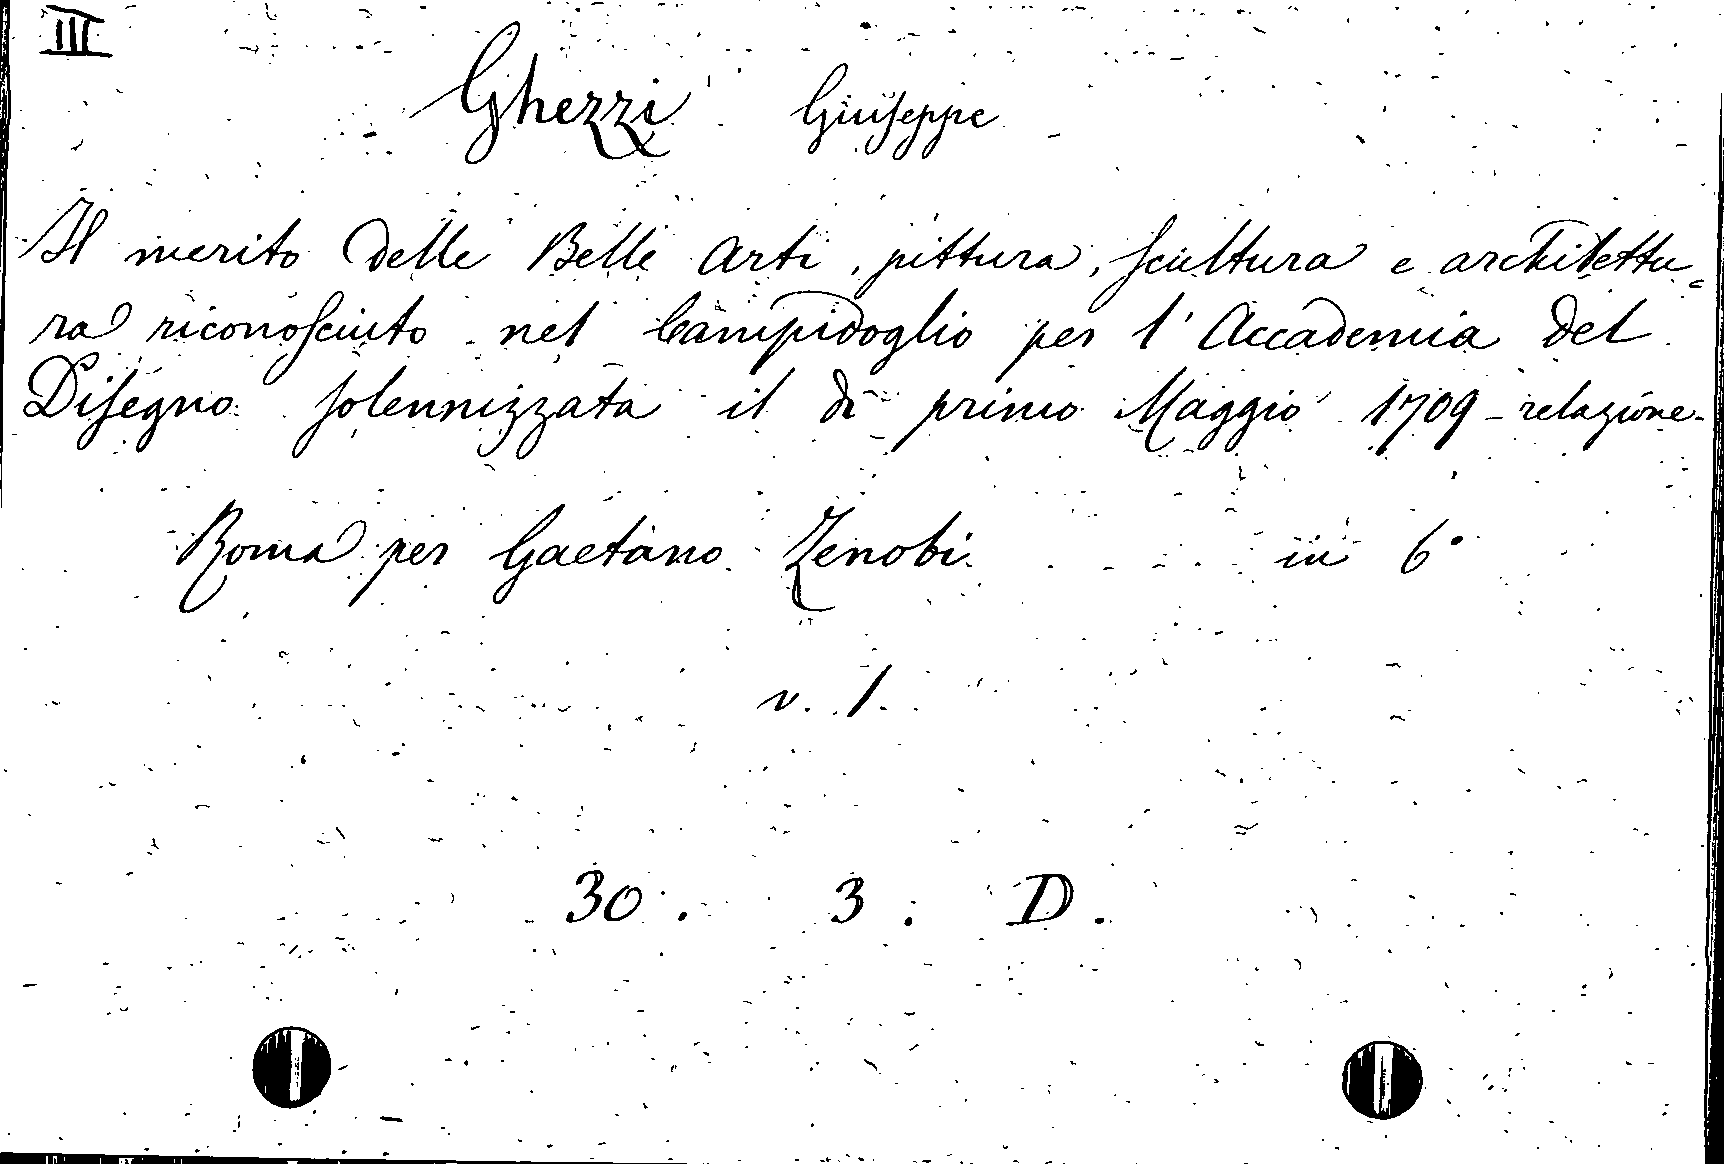 III
Ghezzi Giuseppe
Il merito delle Belle Arti, pittura, scultura e architettu=
ra riconosciuto nel Campidoglio per l'Accademia del
Disegno solennizzata il dì primo Maggio 1709 - relazione -
Roma per Gaetano Zenobi. in 6°
v. 1.
30. 3. D.